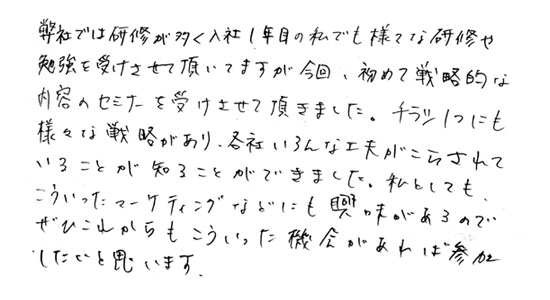 弊社では研修が多く入社1年目の私でも様々な研修や
勉強を受けさせて頂いてますが今回、初めて戦略的な
内容のセミナーを受けさせて頂きました。チラシ1つにも
様々な戦略があり、各社いろんな工夫がこらされて
いることが知ることができました。私としても、
こういったマーケティングなどにも興味があるので
ぜひこれからもこういった機会があれば参加
したいと思います。